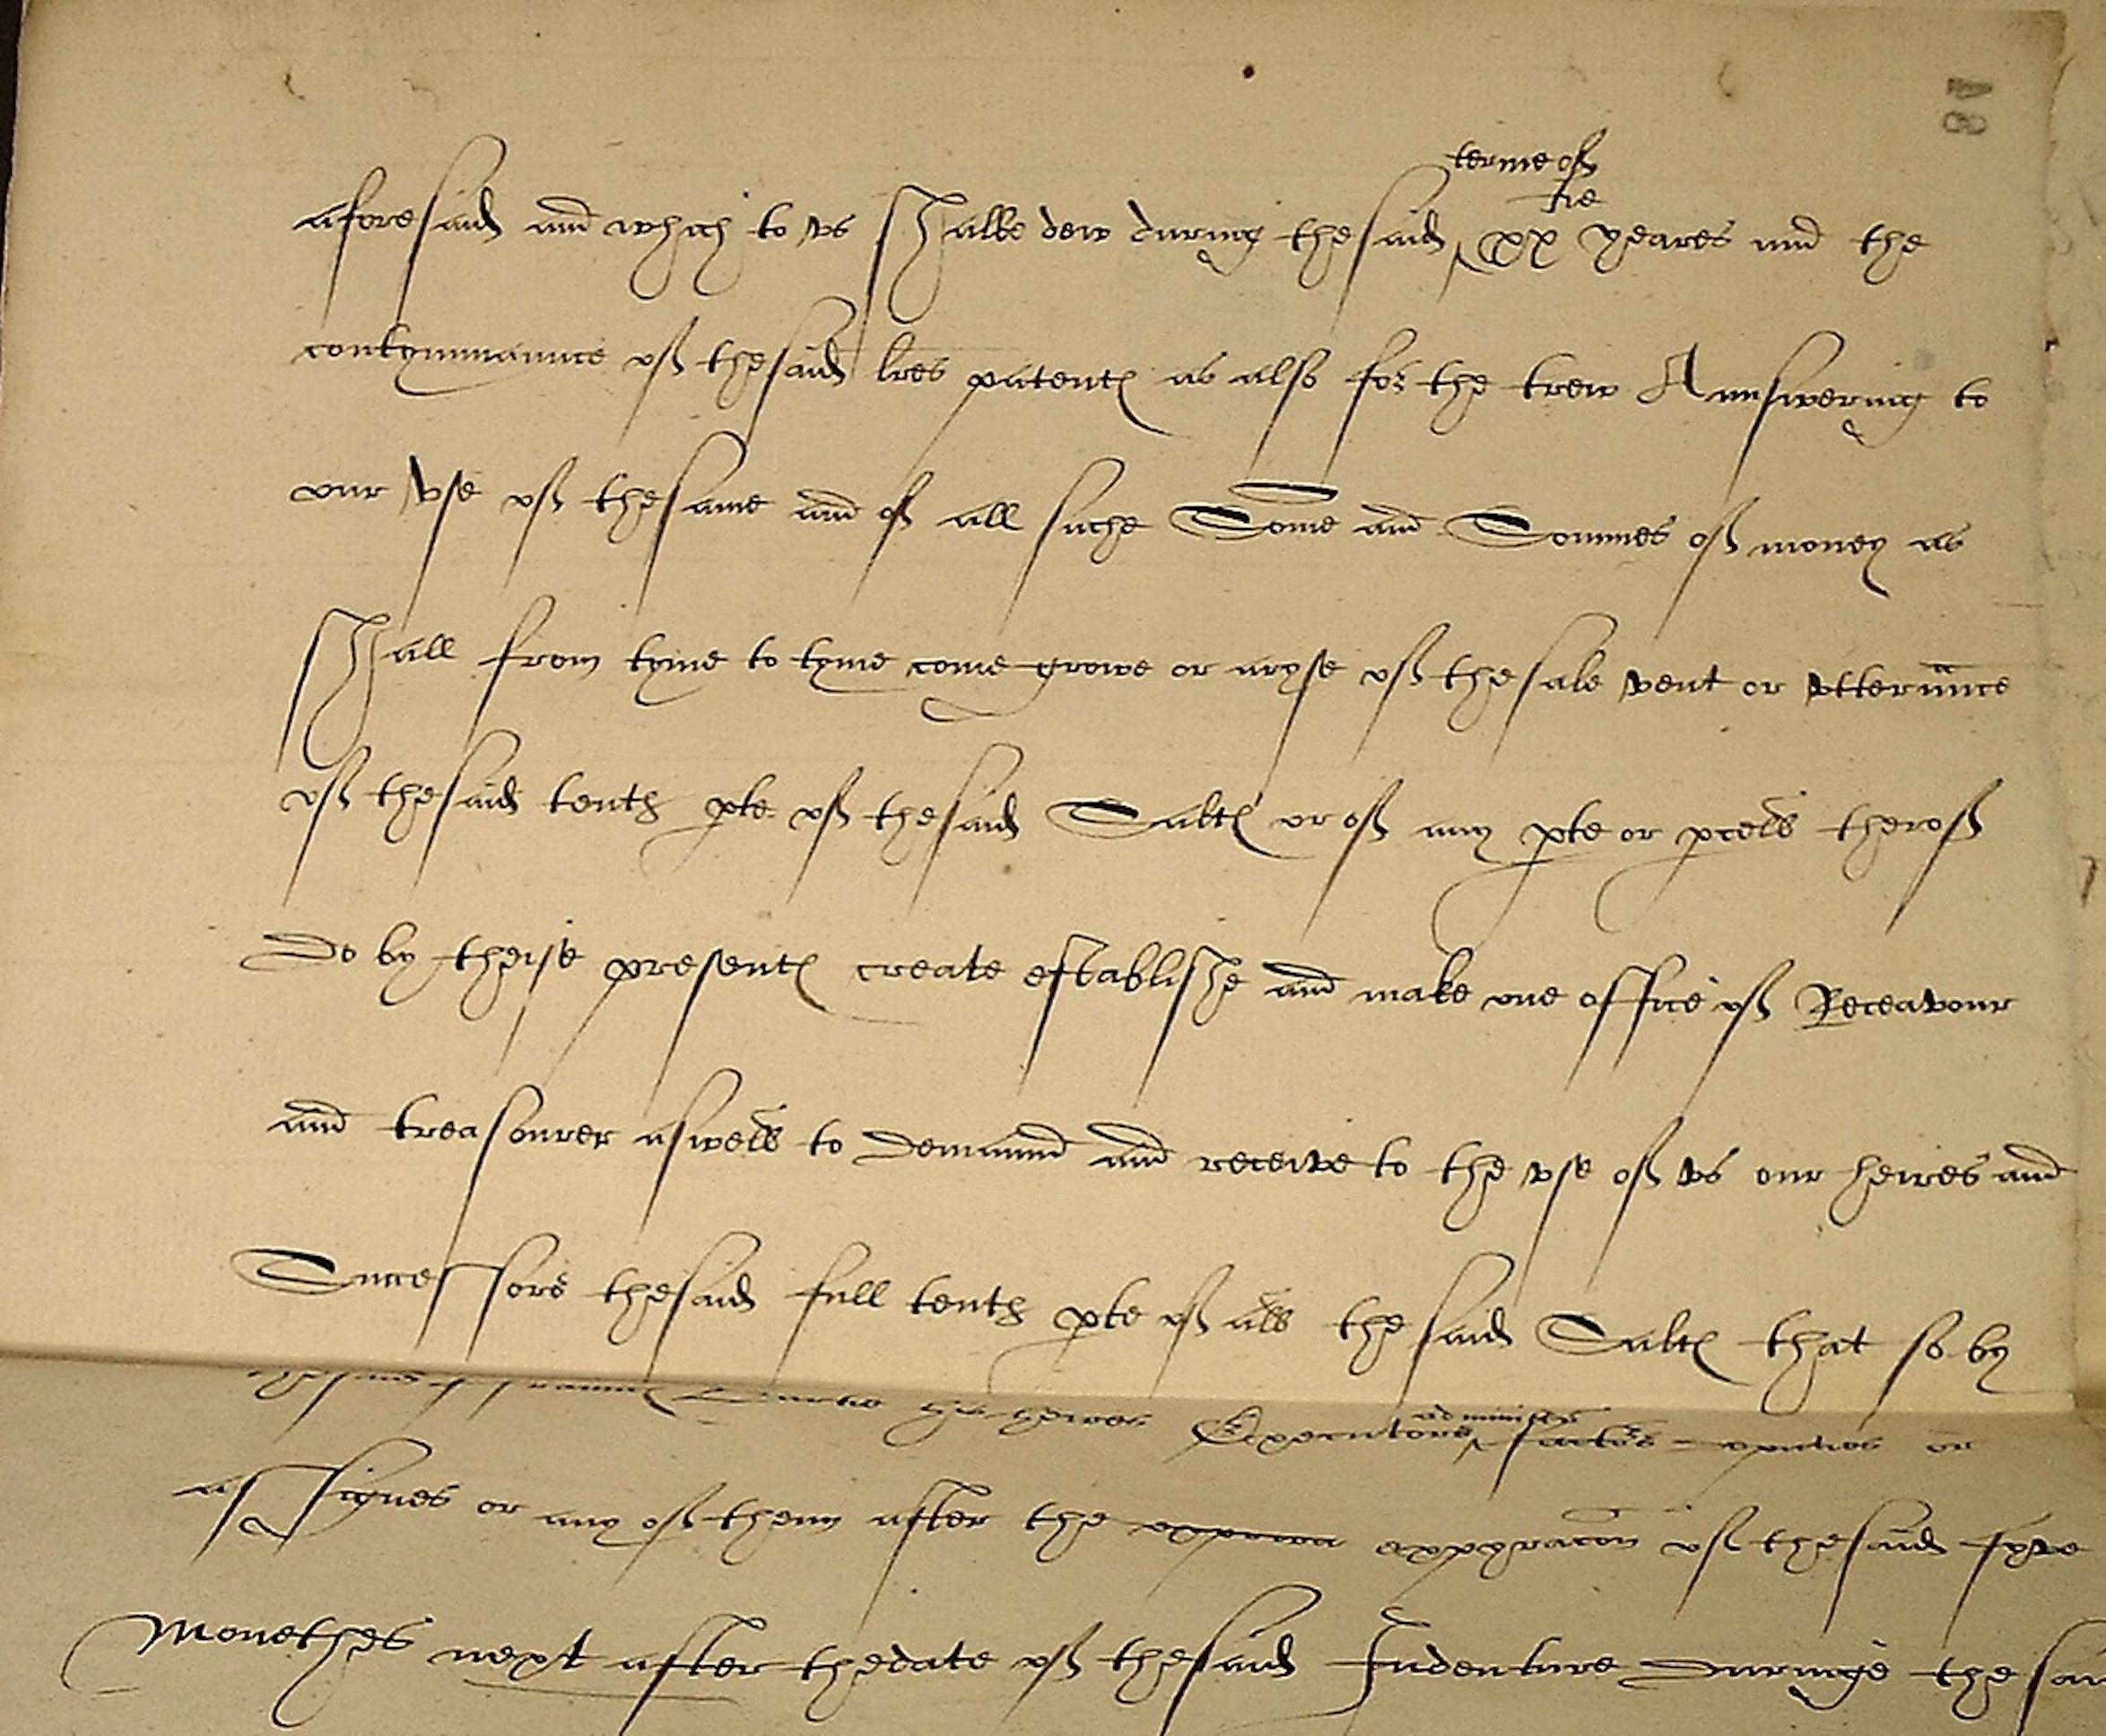 48
terme of
tie
aforesaid and which to vs shalbe dew during the said xx yeares and the
contynuaunce of thesaid lres patentes as also for the trew Aunswering to
our vse of the same and of all suche Some and Sommes of money as
shall from tyme to tyme come growe or aryse of the sale vent or vtteraunce
of thesaid tenth pte of thesaid Saltes or of any pte or pcell therof
Do by theise presentes create establishe and make one office of Receavour
and treasourer aswell to demaund and receive to the vse of vs our heires and
Successors thesaid full tenth pte of all the said Saltes that so by
administr
thesaid Fraunces his heires Executors factors deputies or
assignes or any of them after the expyracon of thesaid fyve
Monethes next after thedate of thesaid Indenture During the sai